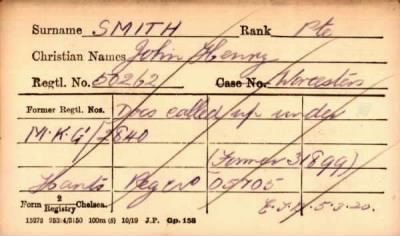 Surname SMITH Rank Pte
Christian Names John Henry
Regtl. No. 50262 Case No. Worcesters
Former Regtl. Nos. Docs called up under
M.K.G/2840
(Former 31899)
Hants Regt 05705
Form 2/Registry Chelsea. E.J.H. 5.3.20.
15272 253/4/3150 100m (s) 10/19 J.P. Gp. 158